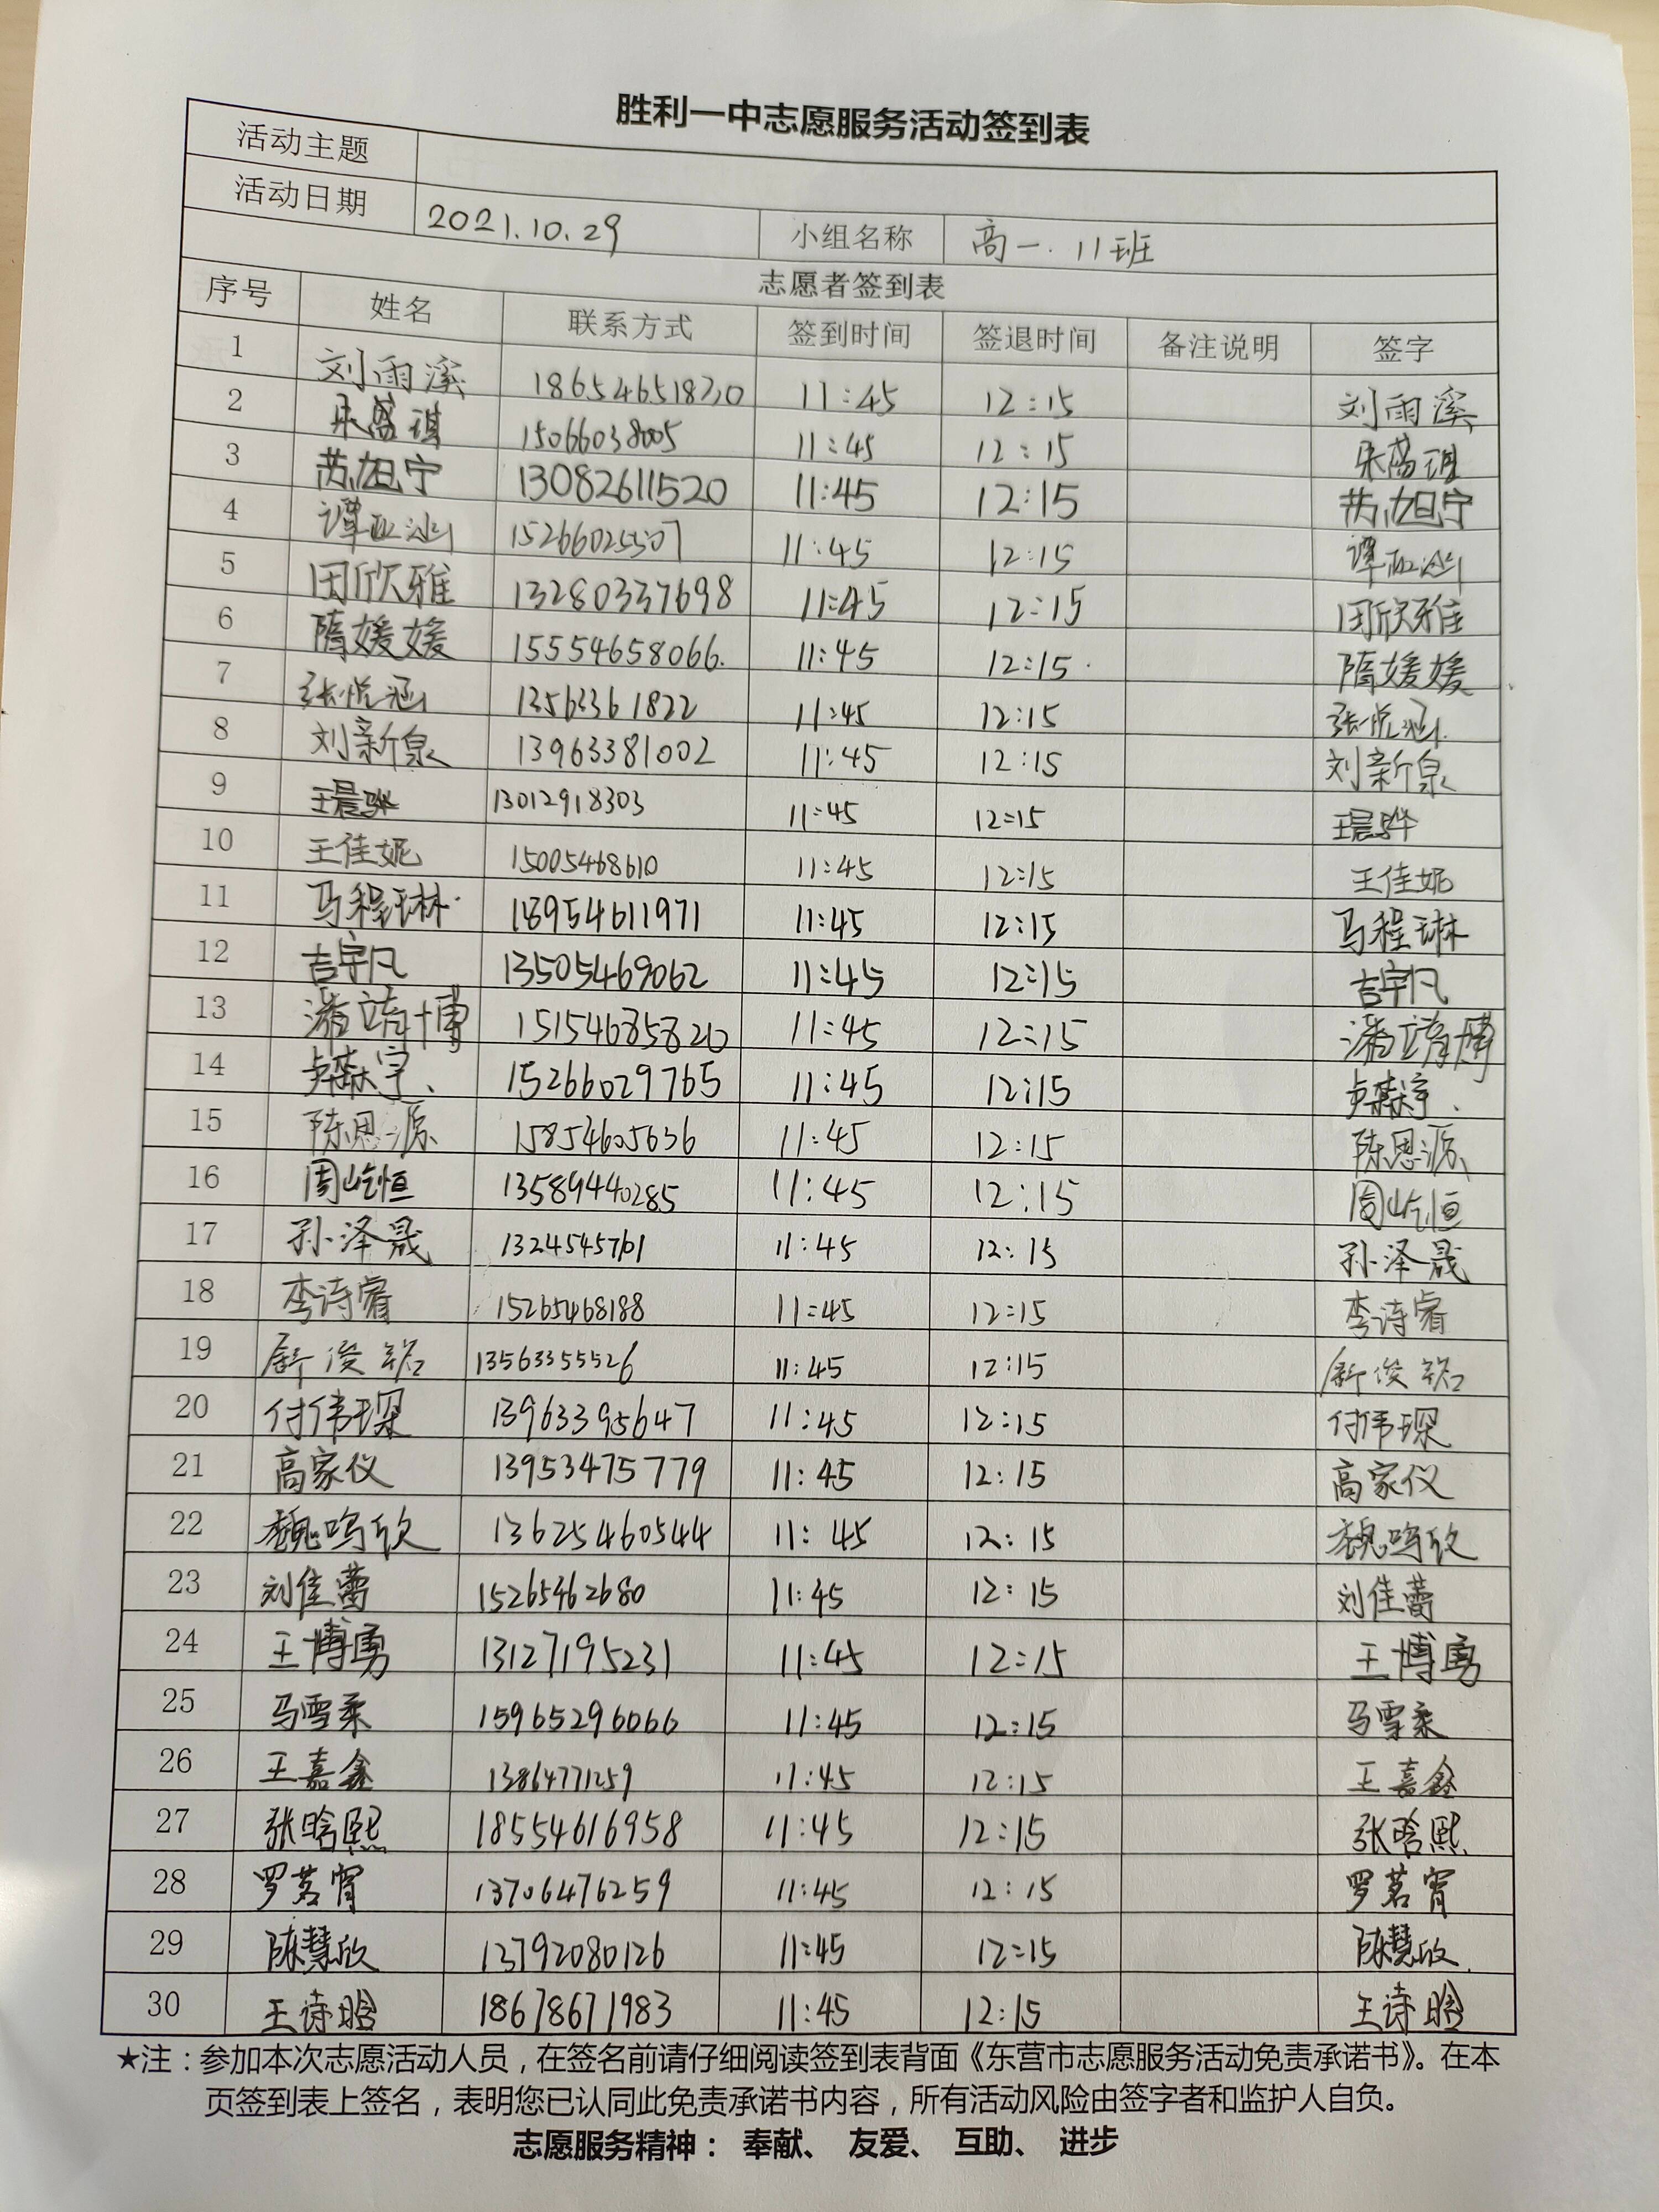 胜利一中志愿服务活动签到表
活动主题
活动日期 2021.10.29 小组名称 高一.11班
志愿者签到表
序号 姓名 联系方式 签到时间 签退时间 备注说明 签字
1 刘雨溪 18654651820 11:45 12:15 刘雨溪
2 盛琪 15066038005 11:45 12:15 盛琪
3 苏旭宁 13082611520 11:45 12:15 苏旭宁
4 谭亚 15266025507 11:45 12:15 谭亚
5 田欣雅 13280337698 11:45 12:15 田欣雅
6 隋媛媛 15554658066. 11:45 12:15 隋媛媛
7 张悦涵 13563361822 11:45 12:15 张悦涵
8 刘新泉 13963381002 11:45 12:15 刘新泉
9 王晨骅 13012918303 11:45 12:15 王晨骅
10 王佳妮 15005468610 11:45 12:15 王佳妮
11 马程琳 18954611971 11:45 12:15 马程琳
12 吉宇凡 13505469062 11:45 12:15 吉宇凡
13 潘靖博 15154685820 11:45 12:15 潘靖博
14 卢森宇 15266029765 11:45 12:15 卢森宇
15 陈思源 15854605636 11:45 12:15 陈思源
16 周屹恒 13589440285 11:45 12:15 周屹恒
17 孙泽晟 1324545761 11:45 12:15 孙泽晟
18 李诗睿 15265468188 11:45 12:15 李诗睿
19 俊铭 13563355526 11:45 12:15 俊铭
20 付伟琛 13963395647 11:45 12:15 付伟琛
21 高家仪 13953475779 11:45 12:15 高家仪
22 魏鸣欣 13625460544 11:45 12:15 魏鸣欣
23 刘佳蕾 15265462680 11:45 12:15 刘佳蕾
24 王博勇 13127195231 11:45 12:15 王博勇
25 马雪柔 15965296066 11:45 12:15 马雪柔
26 王嘉鑫 13864771259 11:45 12:15 王嘉鑫
27 张晗熙 18554616958 11:45 12:15 张晗熙
28 罗茗宵 13706476259 11:45 12:15 罗茗宵
29 陈慧欣 13792080126 11:45 12:15 陈慧欣
30 王诗晗 18678671983 11:45 12:15 王诗晗
★注：参加本次志愿活动人员，在签名前请仔细阅读签到表背面《东营市志愿服务活动免责承诺书》。在本
页签到表上签名，表明您已认同此免责承诺书内容，所有活动风险由签字者和监护人自负。
志愿服务精神： 奉献、 友爱、 互助、 进步